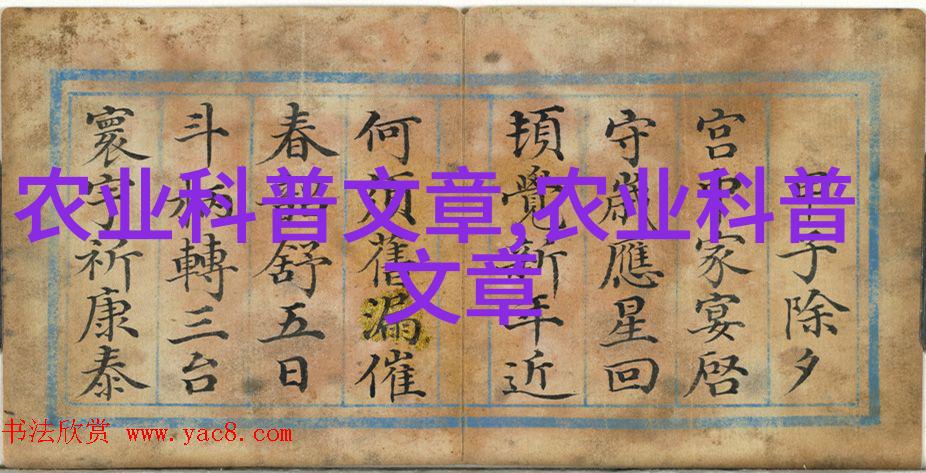 农业科普文章,农业科普
文章
子除夕
宮中家宴啓
守歲應星回
頓覺新年近
何舊漏催
春舒五日
斗柄轉三台
寰宇祈康泰
书法欣赏 www.yac8.com